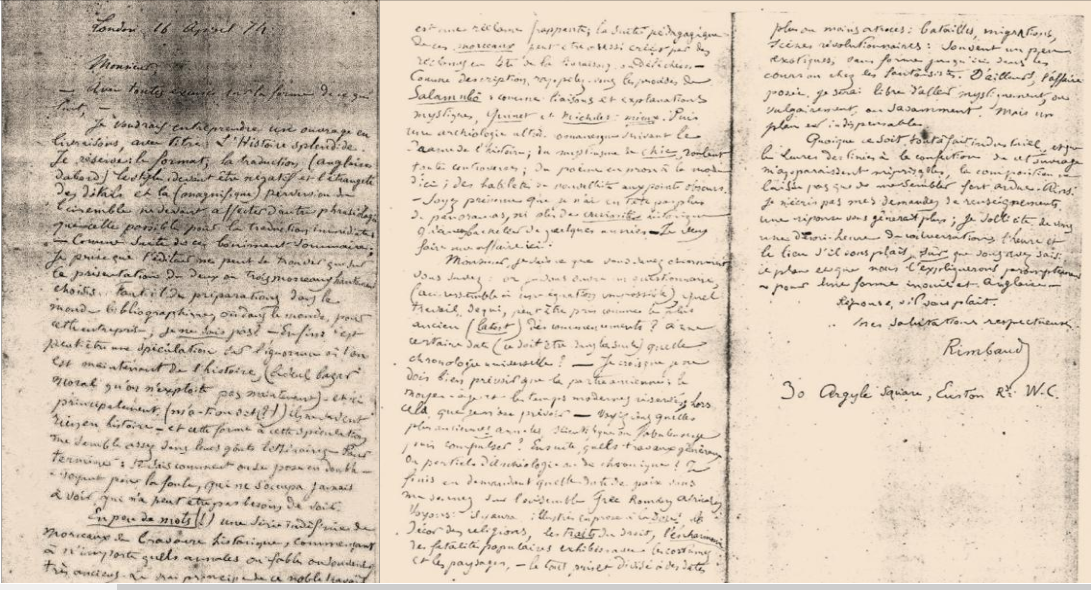 London, 16 April 74
Monsieur
— Avec toutes excuses sur la forme de ce qui
suit, —
Je voudrais entreprendre un ouvrage en
livraisons, avec titre : L'Histoire splendide.
Je réserve : le format ; la traduction, (anglaise
d'abord) le style devant être négatif et l'étrangeté
des détails et la (magnifique) perversion de
l'ensemble ne devant affecter d'autre phraséologie
que celle possible pour la traduction immédiate :
— Comme suite de ce boniment sommaire :
Je prise que l'éditeur ne peut se trouver que sur
la présentation de deux ou trois morceaux hautement
choisis. Faut-il des préparations dans le
monde bibliographique, ou dans le monde, pour
cette entreprise, je ne sais pas ? — Enfin c'est
peut-être une spéculation sur l'ignorance où l'on
est maintenant de l'histoire, (le seul bazar
moral qu'on n'exploite pas maintenant) — et ici
principalement (m'a-t-on dit (?)) ils ne savent
rien en histoire — et cette forme à cette spéculation
me semble assez dans leurs goûts littéraires — Pour
terminer : je sais comment on se pose en double-
voyant pour la foule, qui ne s'occupa jamais
à voir, qui n'a peut-être pas besoin de voir.
En peu de mots (!) une série indéfinie de
morceaux de bravoure historique, commençant
à n'importe quels annales ou fables ou souvenirs
très anciens. Le vrai principe de ce noble travail
est une réclame frappante ; la suite pédagogique
de ces morceaux peut être aussi créée par des
réclames en tête de la livraison, ou détachées. —
Comme description, rappelez-vous les procédés de
Salammbô : comme liaisons et explanations
mystiques, Quinet et Michelet : mieux. Puis
une archéologie ultra-romanesque suivant le
drame de l'histoire ; du mysticisme de chic, roulant
toutes controverses ; du poème en prose à la mode
d'ici ; des habiletés de nouvelliste aux points obscurs.
— Soyez prévenu que je n'ai en tête pas plus
de panoramas, ni plus de curiosités historiques
qu'à un bachelier de quelques années — Je veux
faire une affaire ici.
Monsieur, je sais ce que vous savez et comment
vous savez : or je vous ouvre un questionnaire,
(ceci ressemble à une équation impossible) quel
travail, de qui, peut être pris comme le plus
ancien (latest) des commencements ? à une
certaine date (ce doit être dans la suite) quelle
chronologie universelle ? — Je crois que je ne
dois bien prévoir que la partie ancienne ; le
Moyen-âge et les temps modernes réservés ; hors
cela que je n'ose prévoir — Voyez-vous quelles
plus anciennes annales scientifiques ou fabuleuses
je puis compulser ? Ensuite, quels travaux généraux
ou partiels d'archéologie ou de chronique ? Je
finis en demandant quelle date de paix vous
me donnez sur l'ensemble Grec Romain Africain.
Voyons : il y aura illustrés en prose à la Doré, le
décor des religions, les traits du droit, l'enharmonie
des fatalités populaires exhibées avec les costumes
et les paysages, — le tout pris et dévidé à des dates
plus ou moins atroces : batailles, migrations,
scènes révolutionnaires : souvent un peu
exotiques, sans forme jusqu'ici dans les
cours ou chez les fantaisistes. D'ailleurs, l'affaire
posée, je serai libre d'aller mystiquement, ou
vulgairement, ou savamment. Mais un
plan est indispensable.
Quoique ce soit tout à fait industriel et que
les heures destinées à la confection de cet ouvrage
m'apparaissent méprisables, la composition ne
laisse pas que de me sembler fort ardue. Ainsi
je n'écris pas mes demandes de renseignements,
une réponse vous gênerait plus ; je sollicite de vous
une demi-heure de conversation, l'heure et
le lieu s'il vous plaît, sûr que vous avez saisi
le plan et que nous l'expliquerons promptement
— pour une forme inouïe et anglaise —
Réponse s'il vous plaît.
Mes salutations respectueuses
Rimbaud
30 Argyle Square, Euston Rd. W.C.